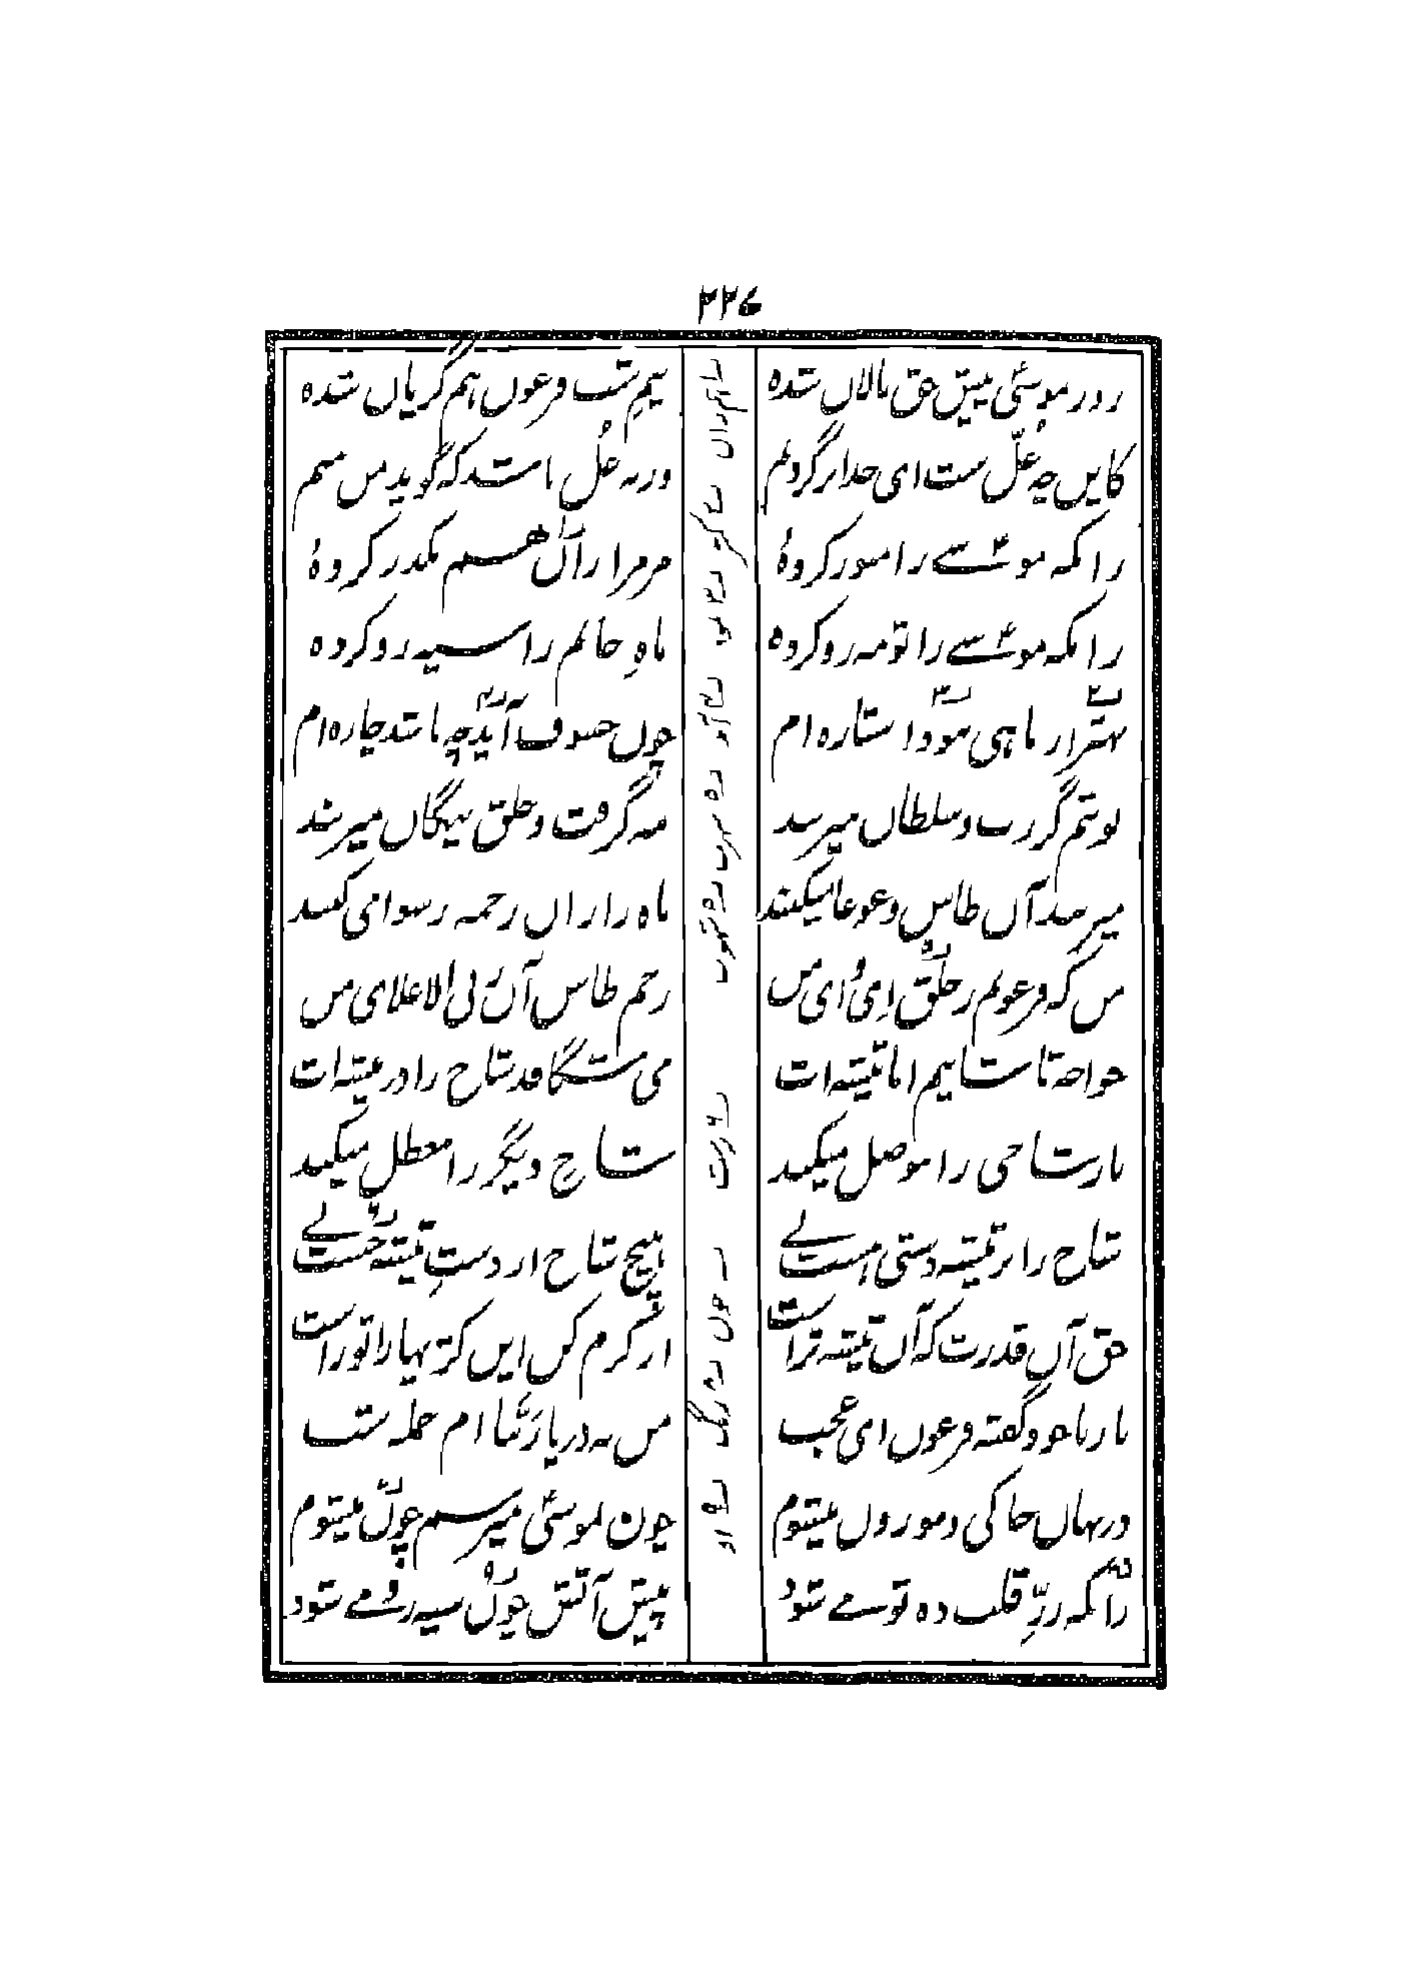 ۲۲۶
روز موسیٰ پیش حق نالاں شده نیم شب فرعوں هم گریاں شده
کایں چه غلّ ست ای خدا بر گردنم ورنه غل باشد که گوید من منم
زانکه موسیٰ را منور کردهٔ مر مرا زاں هم مکدر کردهٔ
زانکه موسیٰ را تو مه رو کرده ماهِ جانم را سیه رو کرده
بهتر از ماهی نبود استاره ام چوں خسوف آید چه باشد چاره ام
نوبتم گر رب و سلطاں میزنند مه گرفت و خلق پنگاں میزنند
میزنند آں طاس و غوغا میکنند ماه را زاں زخمه رسوا می کنند
من که فرعونم ز خلق ای وای من زخم طاس آں ربی الاعلای من
خواجه تا شانیم اما تیشه ات می شگافد شاخ را در بیشه ات
باز شاخی را موصل میکند شاخ دیگر را معطل میکند
شاخ را بر تیشه دستی هست لے هیچ شاخ از دستِ تیشه جست لے
حق آں قدرت که آں تیشه تراست از کرم کن ایں کژیها را تو راست
باز با خود گفته فرعوں ای عجب من نه در یا ربنا ام جمله شب
در نهاں خاکی و موزوں میشوم چون بموسیٰ میرسم چوں میشوم
زانکه رزِّ قلب ده تو مے شود پیش آتش چوں سیه رو مے شود